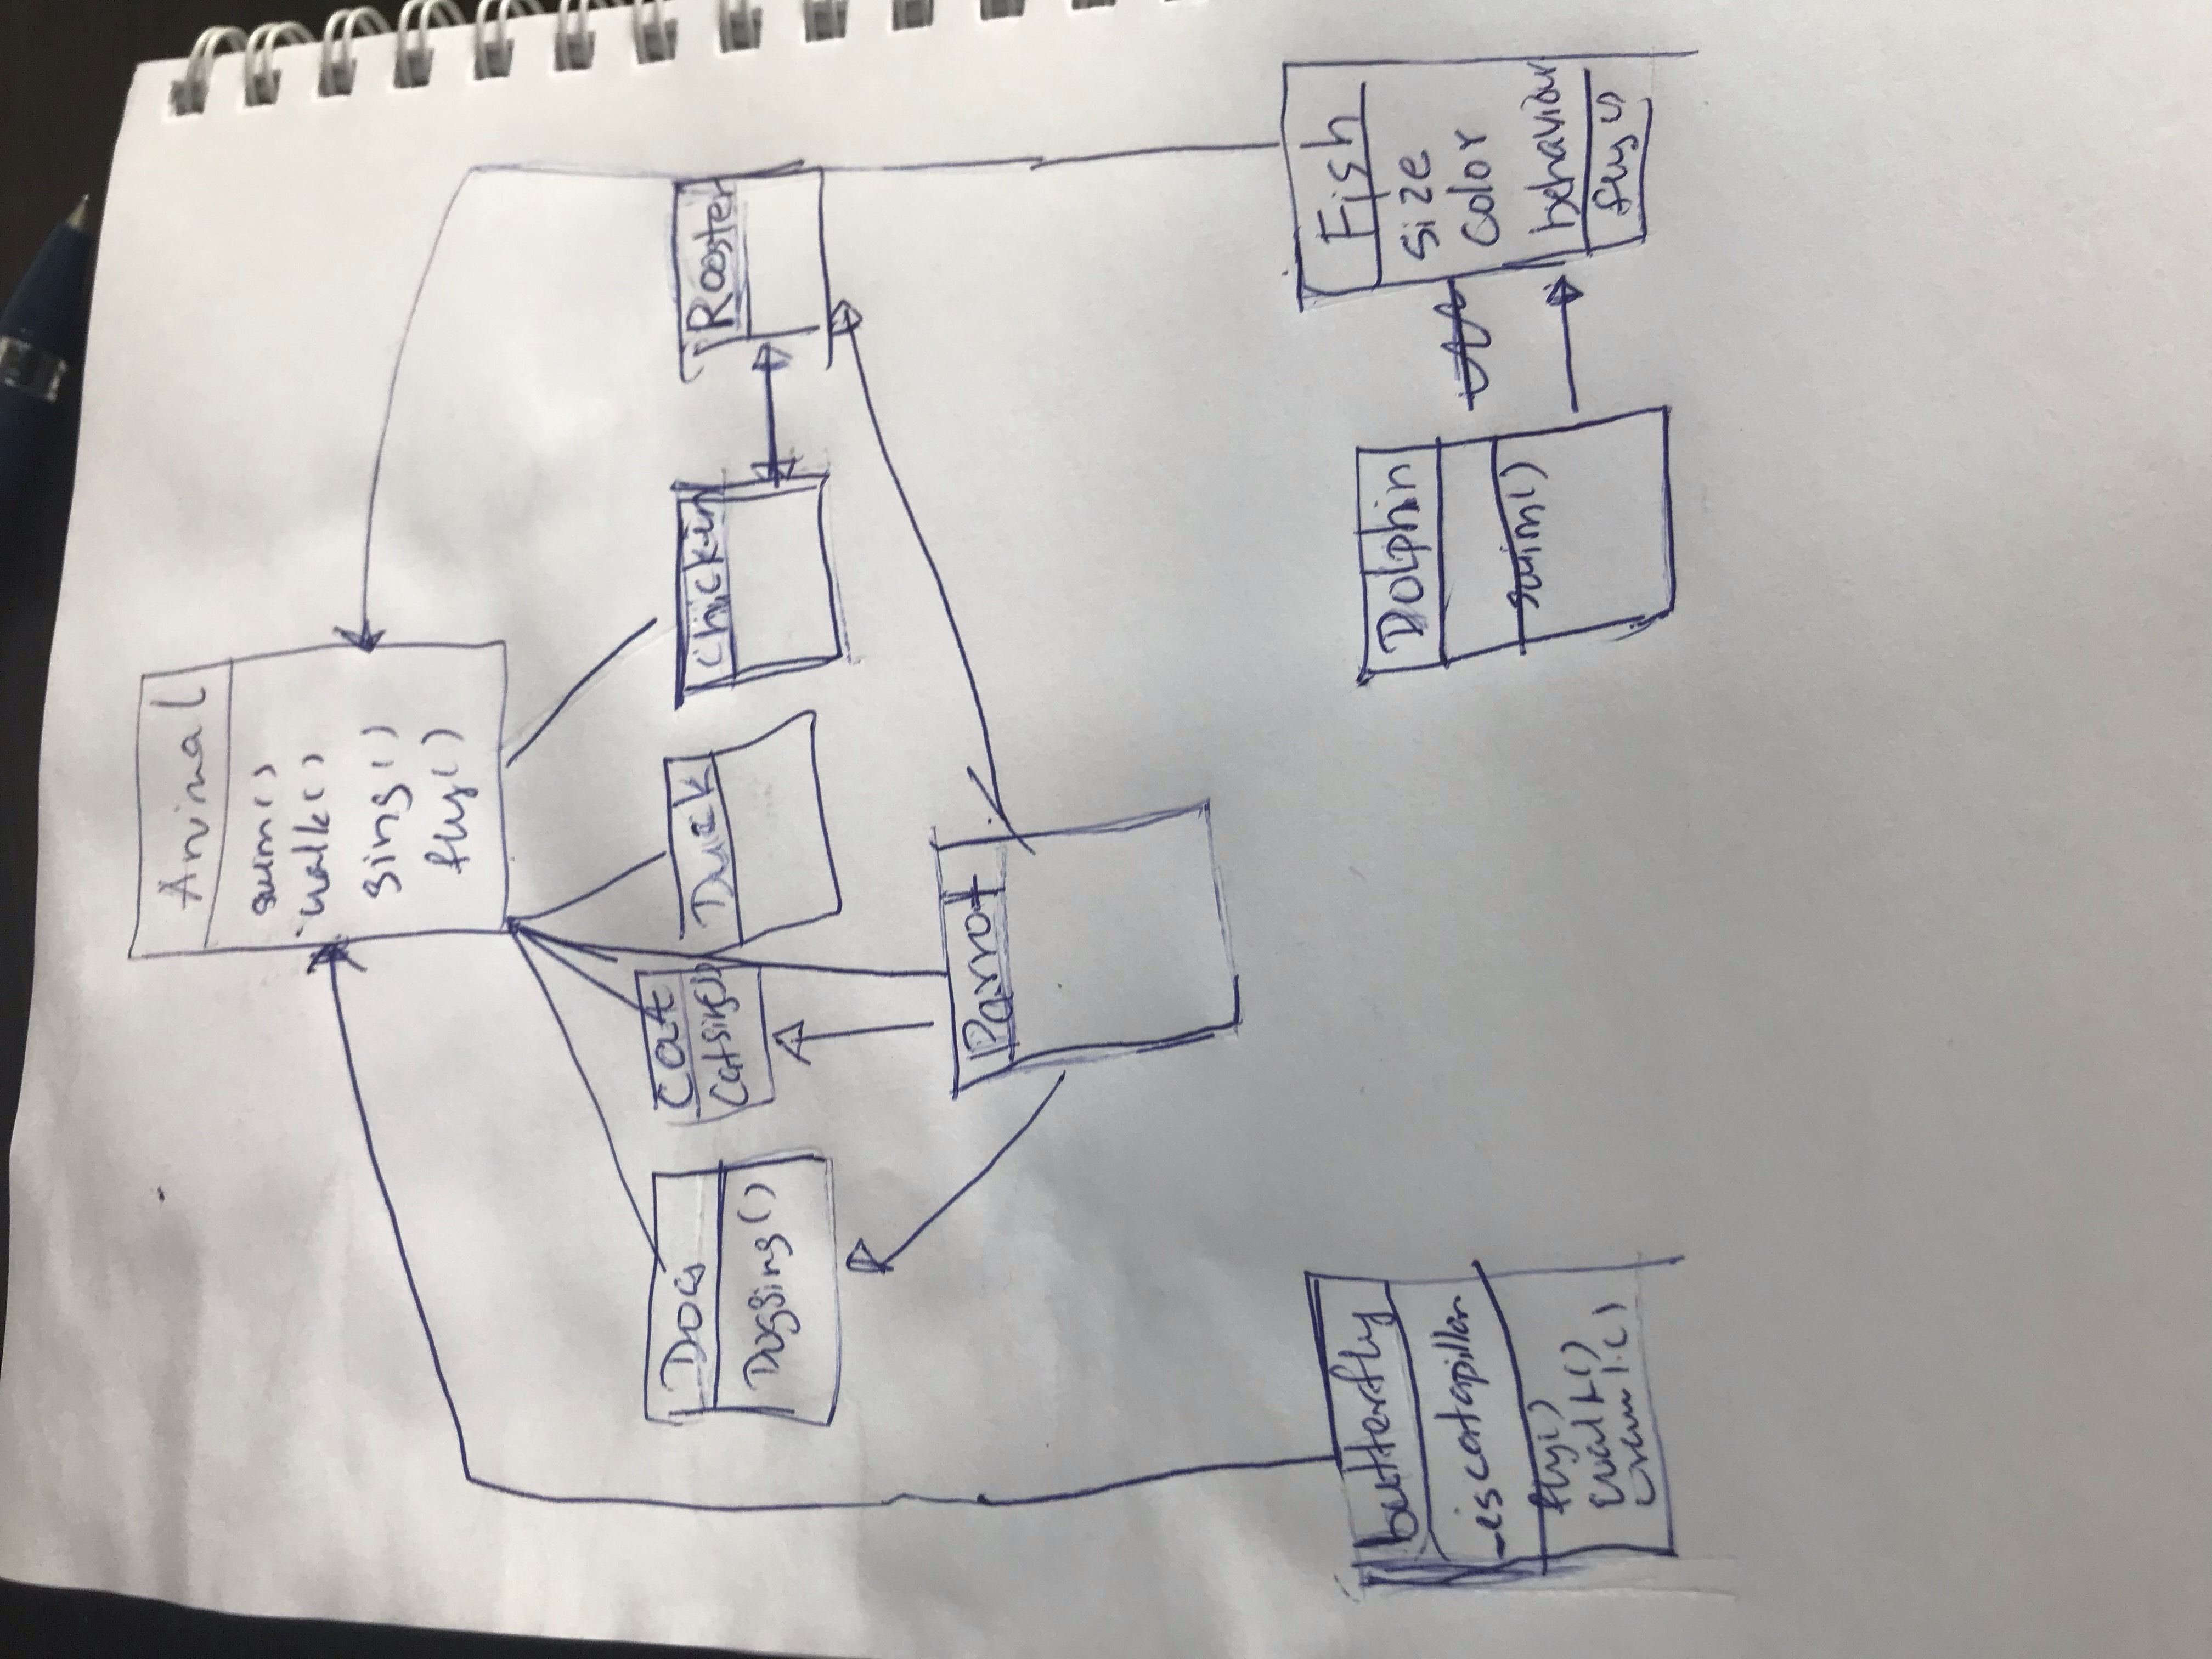 Animal
swim()
walk()
sing()
fly()
Dog
DogSing()
Cat
CatSing()
Duck
Chickin
Rooster
Parrot
butterfly
-iscatapillar
fly()
walk()
Dolphin
swim()
Fish
size
color
behaviour
fly()